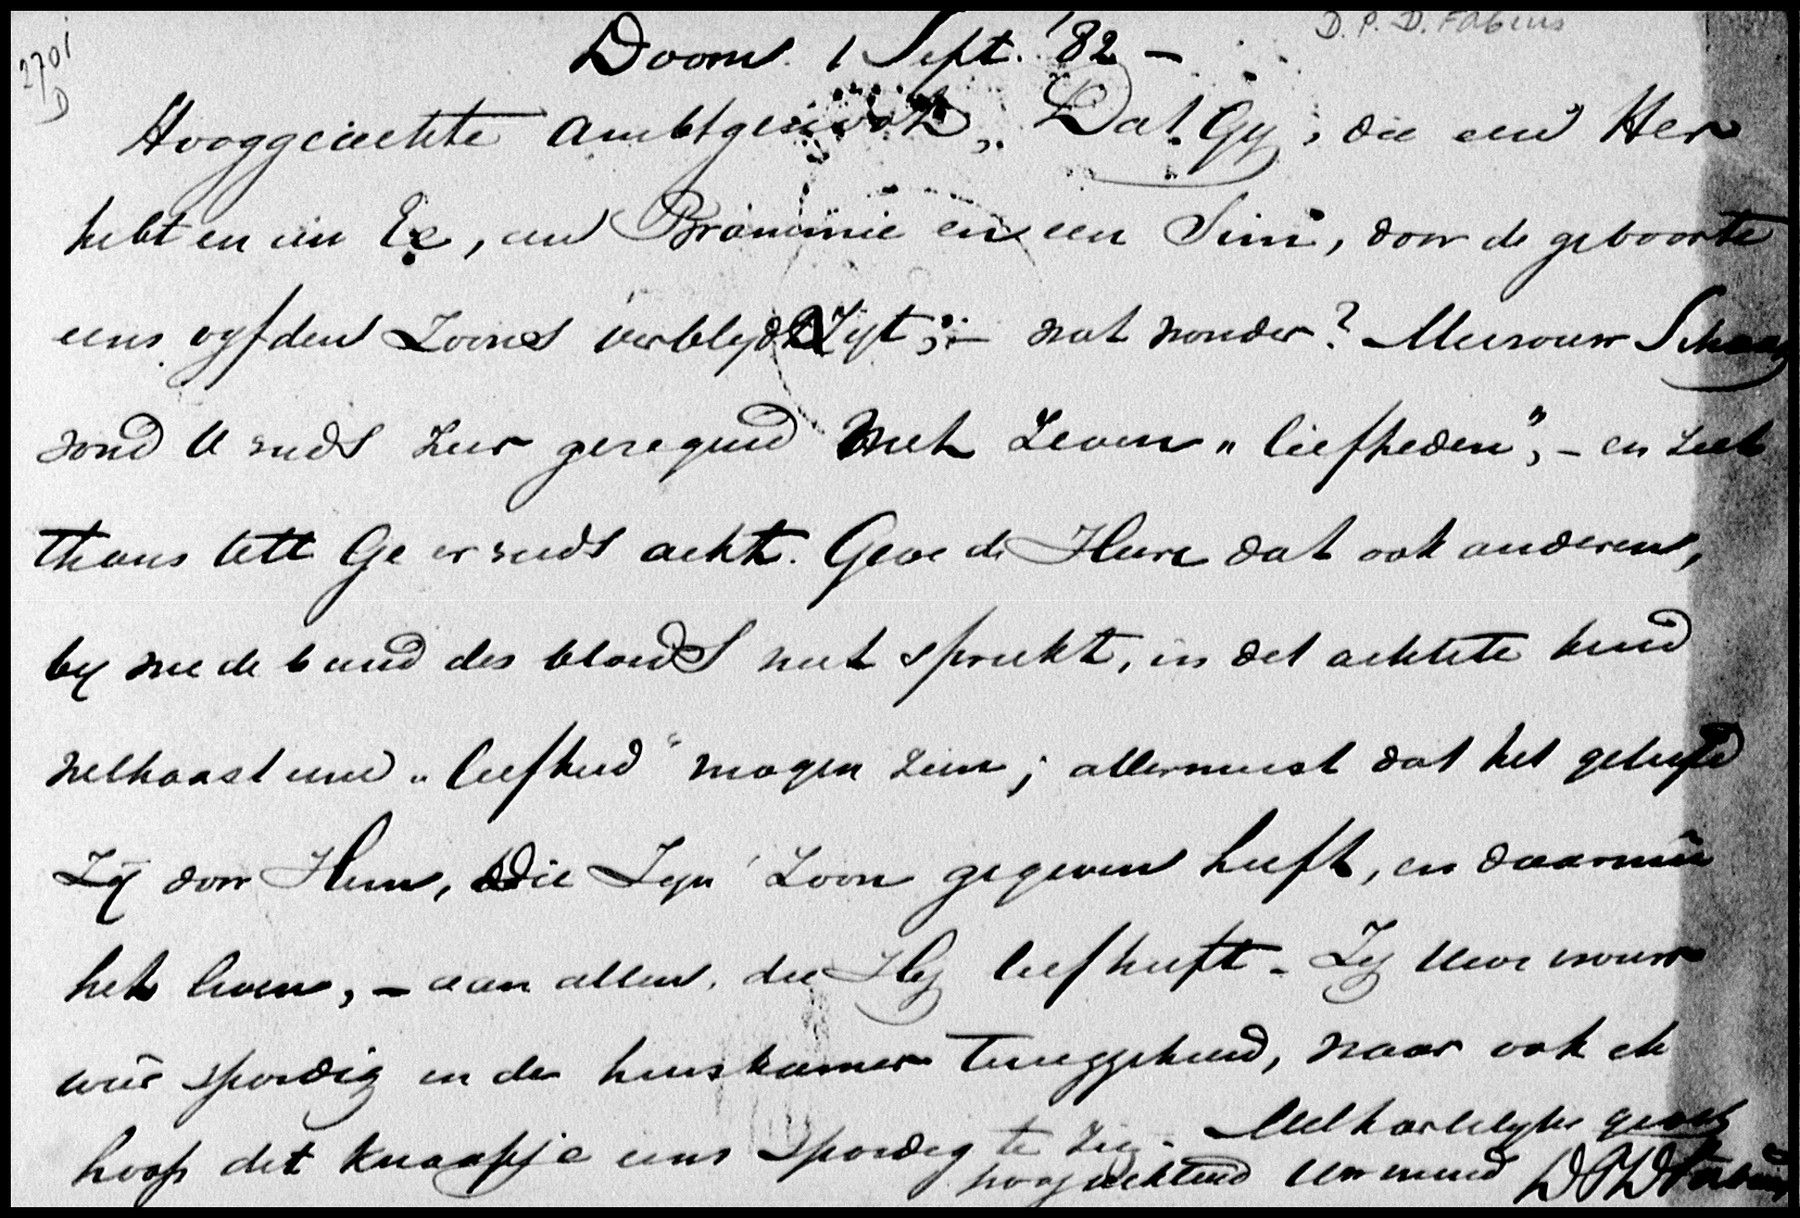 D. P. D. Fabius
2701
D
Doorn. 1 Sept. '82 -
Hooggeachte Ambtgenoot, Dat Gij, die een Her
hebt en een Ee, een Brammie en een Simi, door de geboorte
eens vijfden Zoons verblijd zijt; - wat wonder? Mevrouw Schaay
vond U reeds zeer gezegend met zeven „liefheden", - en ziet
thans telt Ge er reeds acht. Geve de Heere dat ook anderen,
bij wie de band des bloeds niet spreekt, in dat achtste kind
welhaast eene „liefheid" mogen zien; allermeest dat het geliefd
Zij door Hem, Die Zijn Zoon gegeven heeft, en daarmeê
het leven, - aan allen, die Hij lief heeft. - Zij Uwe vrouw
weêr spoedig in de huiskamer teruggekeerd, waar ook ik
hoop dat knaapje eens spoedig te zien. Met hartelijke groet
hoogachtend Uw vriend DPDFabius